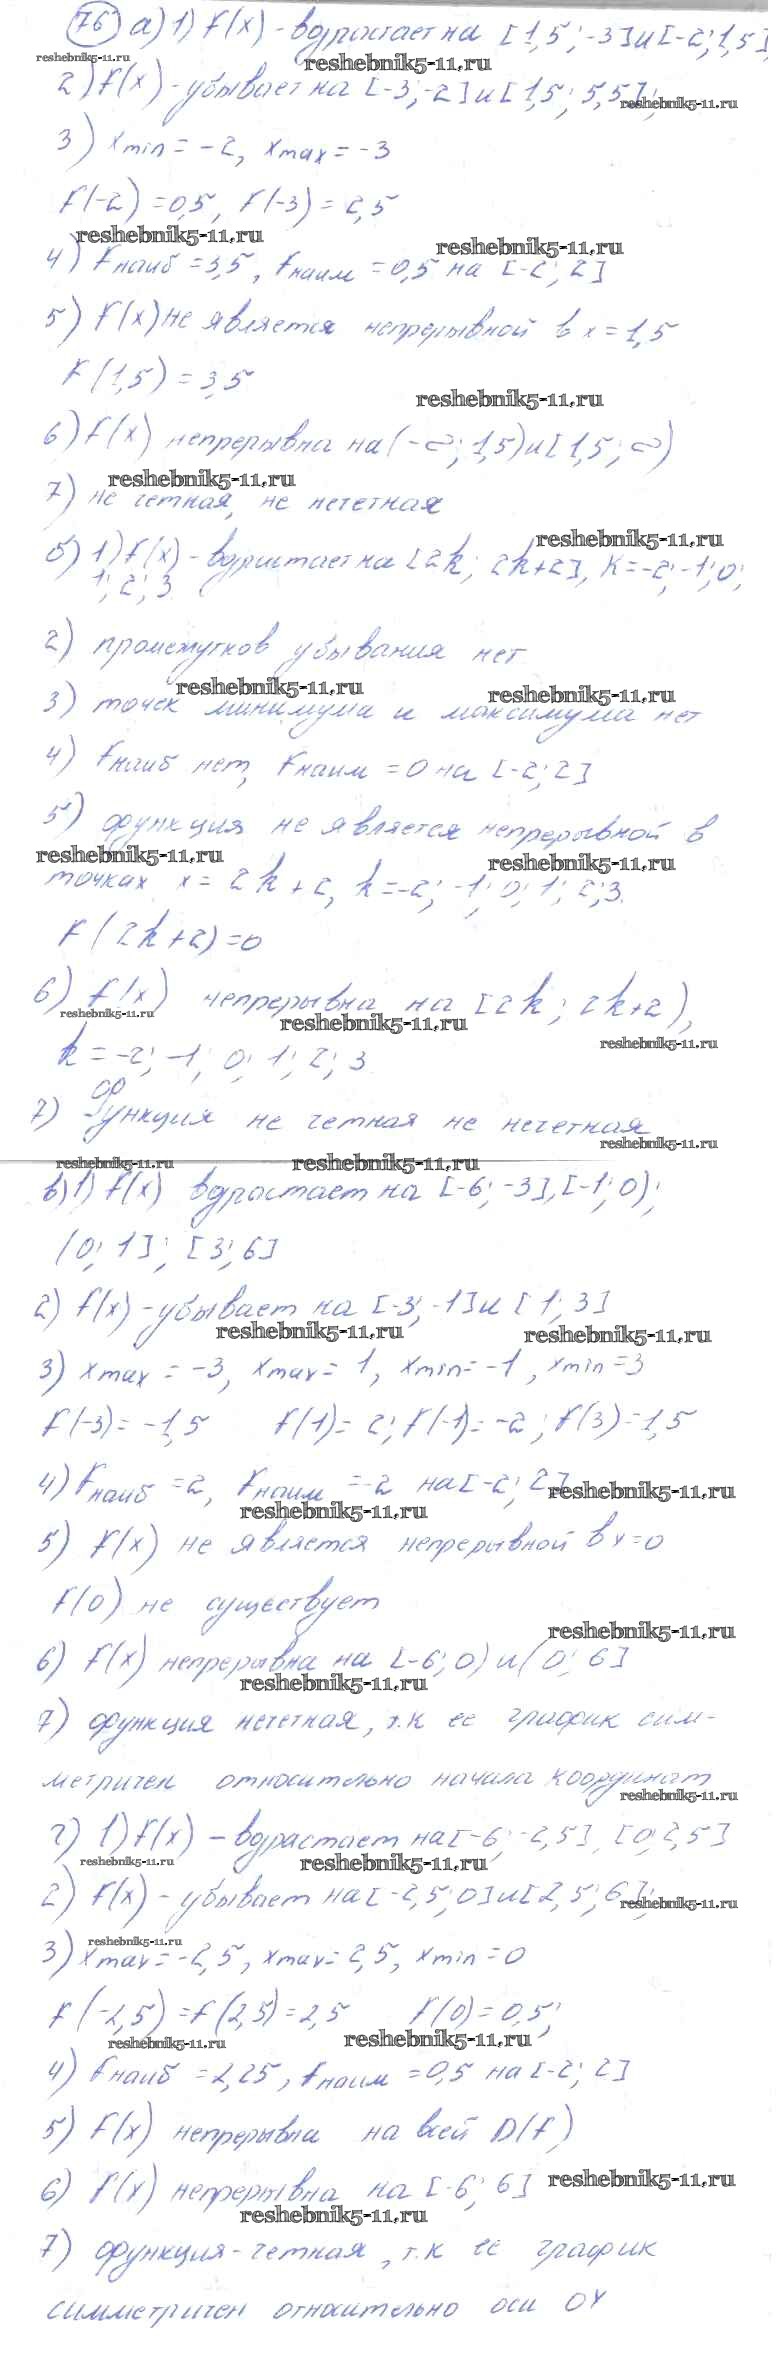 76 а) 1) f(x) - возрастает на [1,5; -3] и [-2; 1,5],
reshebnik5-11.ru reshebnik5-11.ru
2) f(x) - убывает на [-3; -2] и [1,5; 5,5];
reshebnik5-11.ru
3) xmin = -2, xmax = -3
f(-2) = 0,5, f(-3) = 2,5
reshebnik5-11.ru reshebnik5-11.ru
4) fнаиб = 3,5, fнаим = 0,5 на [-2; 2]
5) f(x) не является непрерывной в x = 1,5
f(1,5) = 3,5
reshebnik5-11.ru
6) f(x) непрерывна на (-∞; 1,5) и [1,5; ∞)
reshebnik5-11.ru
7) не четная, не нечетная
reshebnik5-11.ru
б) 1) f(x) - возрастает на [2k; 2k+2], k = -2; -1; 0;
1; 2; 3
2) промежутков убывания нет
reshebnik5-11.ru reshebnik5-11.ru
3) точек минимума и максимума нет
4) fнаиб нет, fнаим = 0 на [-2; 2]
5) функция не является непрерывной в
reshebnik5-11.ru reshebnik5-11.ru
точках x = 2k+2, k = -2; -1; 0; 1; 2; 3.
f(2k+2) = 0
6) f(x) непрерывна на [2k; 2k+2),
reshebnik5-11.ru reshebnik5-11.ru reshebnik5-11.ru
k = -2; -1; 0; 1; 2; 3
7) функция не четная не нечетная
reshebnik5-11.ru
reshebnik5-11.ru reshebnik5-11.ru
в) 1) f(x) возрастает на [-6; -3], [-1; 0);
(0; 1]; [3; 6]
2) f(x) - убывает на [-3; -1] и [1; 3]
reshebnik5-11.ru reshebnik5-11.ru
3) xmax = -3, xmax = 1, xmin = -1, xmin = 3
f(-3) = -1,5 f(1) = 2; f(-1) = -2; f(3) = 1,5
4) fнаиб = 2, fнаим = -2 на [-2; 2]
reshebnik5-11.ru
reshebnik5-11.ru
5) f(x) не является непрерывной в x = 0
f(0) не существует
reshebnik5-11.ru
6) f(x) непрерывна на [-6; 0) и (0; 6]
reshebnik5-11.ru
7) функция нечетная, т.к ее график сим-
метричен относительно начала координат
reshebnik5-11.ru
г) 1) f(x) - возрастает на [-6; -2,5], [0; 2,5]
reshebnik5-11.ru reshebnik5-11.ru
2) f(x) - убывает на [-2,5; 0] и [2,5; 6];
reshebnik5-11.ru
reshebnik5-11.ru
3) xmax = -2,5, xmax = 2,5, xmin = 0
f(-2,5) = f(2,5) = 2,5 f(0) = 0,5;
reshebnik5-11.ru reshebnik5-11.ru
4) fнаиб = 2,25, fнаим = 0,5 на [-2; 2]
5) f(x) непрерывна на всей D(f)
6) f(x) непрерывна на [-6; 6]
reshebnik5-11.ru
reshebnik5-11.ru
7) функция - четная, т.к ее график
симметричен относительно оси OY